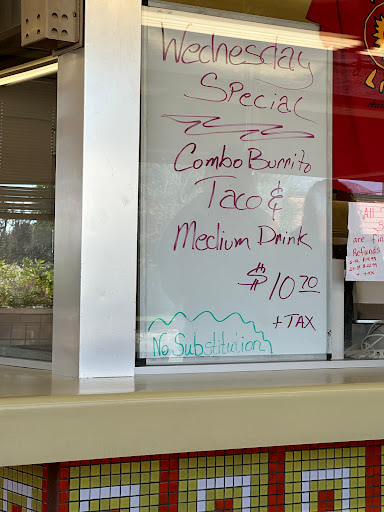 Wednesday
Special
Combo Burrito
Taco &
Medium Drink
$10 70
+ TAX
No Substituiion
All
are fin
Refunds
+ TAX